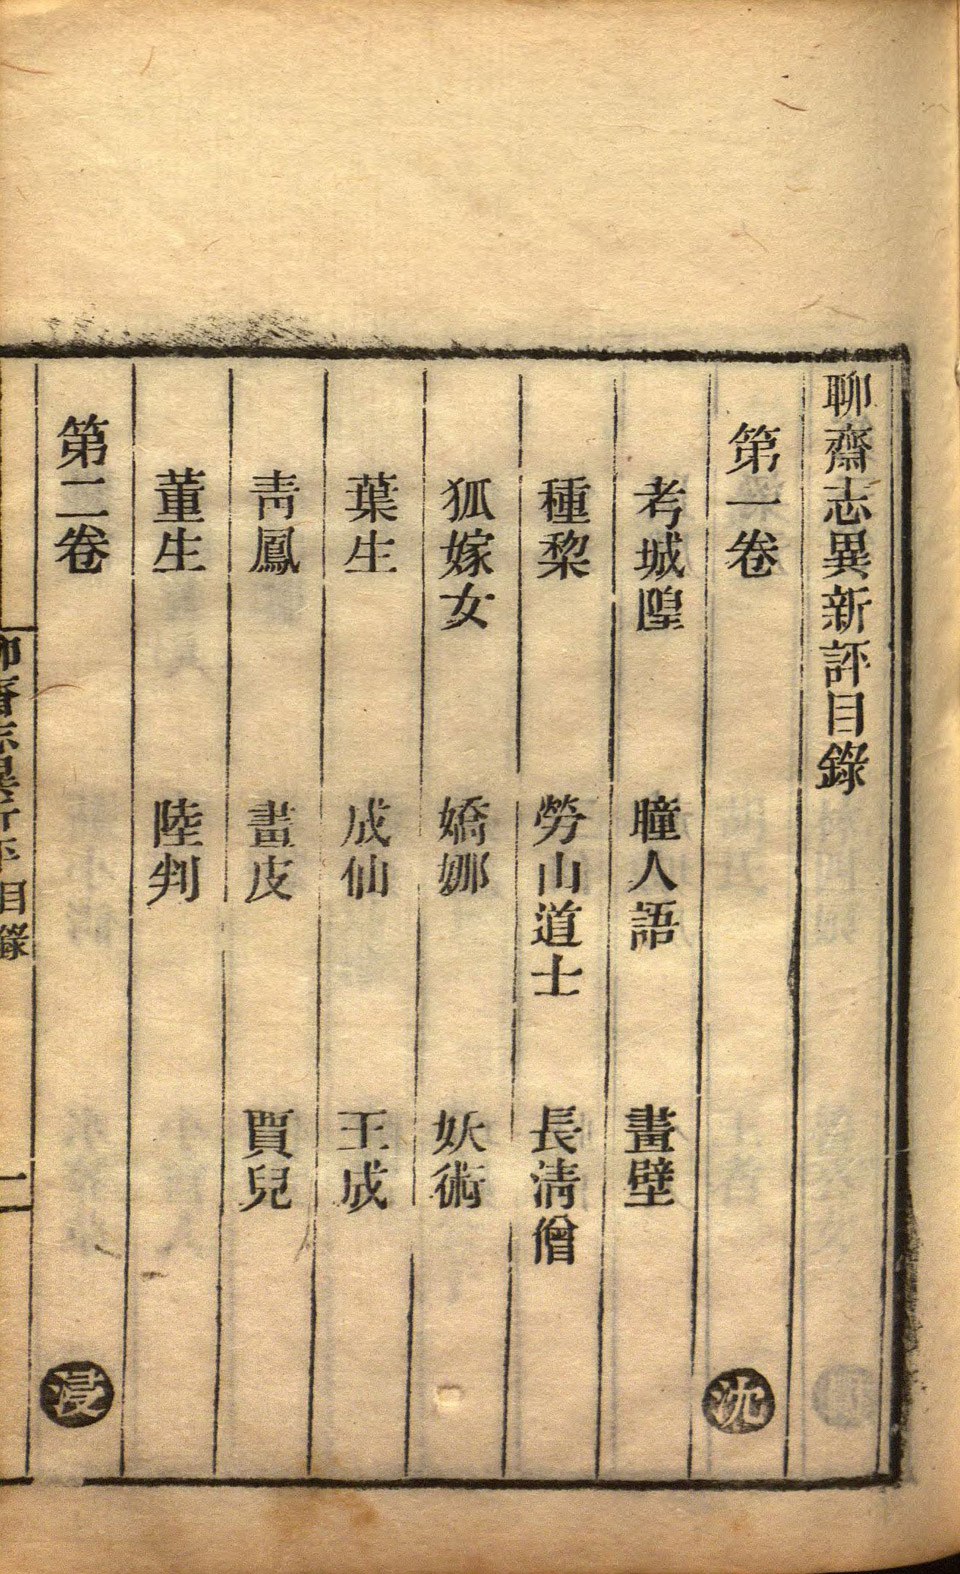 聊齋志異新評目錄
第一卷 沈
考城隍 瞳人語 畫壁
種棃 勞山道士 長淸僧
狐嫁女 嬌娜 妖術
葉生 成仙 王成
靑鳳 畫皮 賈兒
董生 陸判
第二卷 浸
聊齋志異新評目錄 一